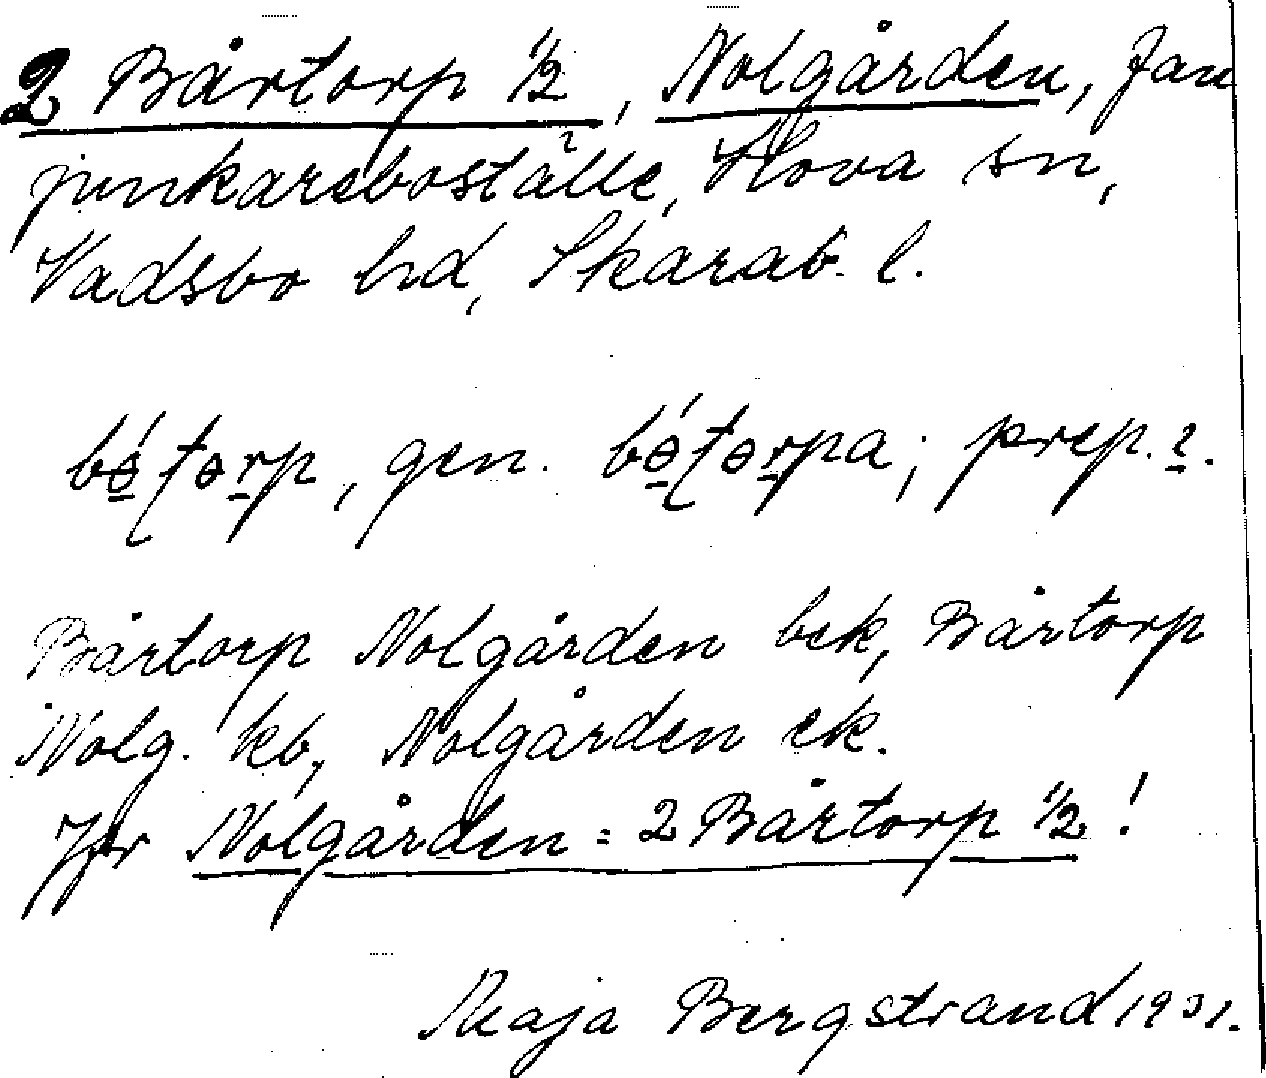 2 Bårtorp 1/2, Nolgården, Fan
junkareboställe, Hova sn,
Vadsbo hd, Skarab. l.
gen. prep.
Bårtorp Nolgården bek, Bårtorp
Nolg. kb, Nolgården ek.
Jfr Nolgården = 2 Bårtorp 1/2!
Maja Bergstrand 1931.